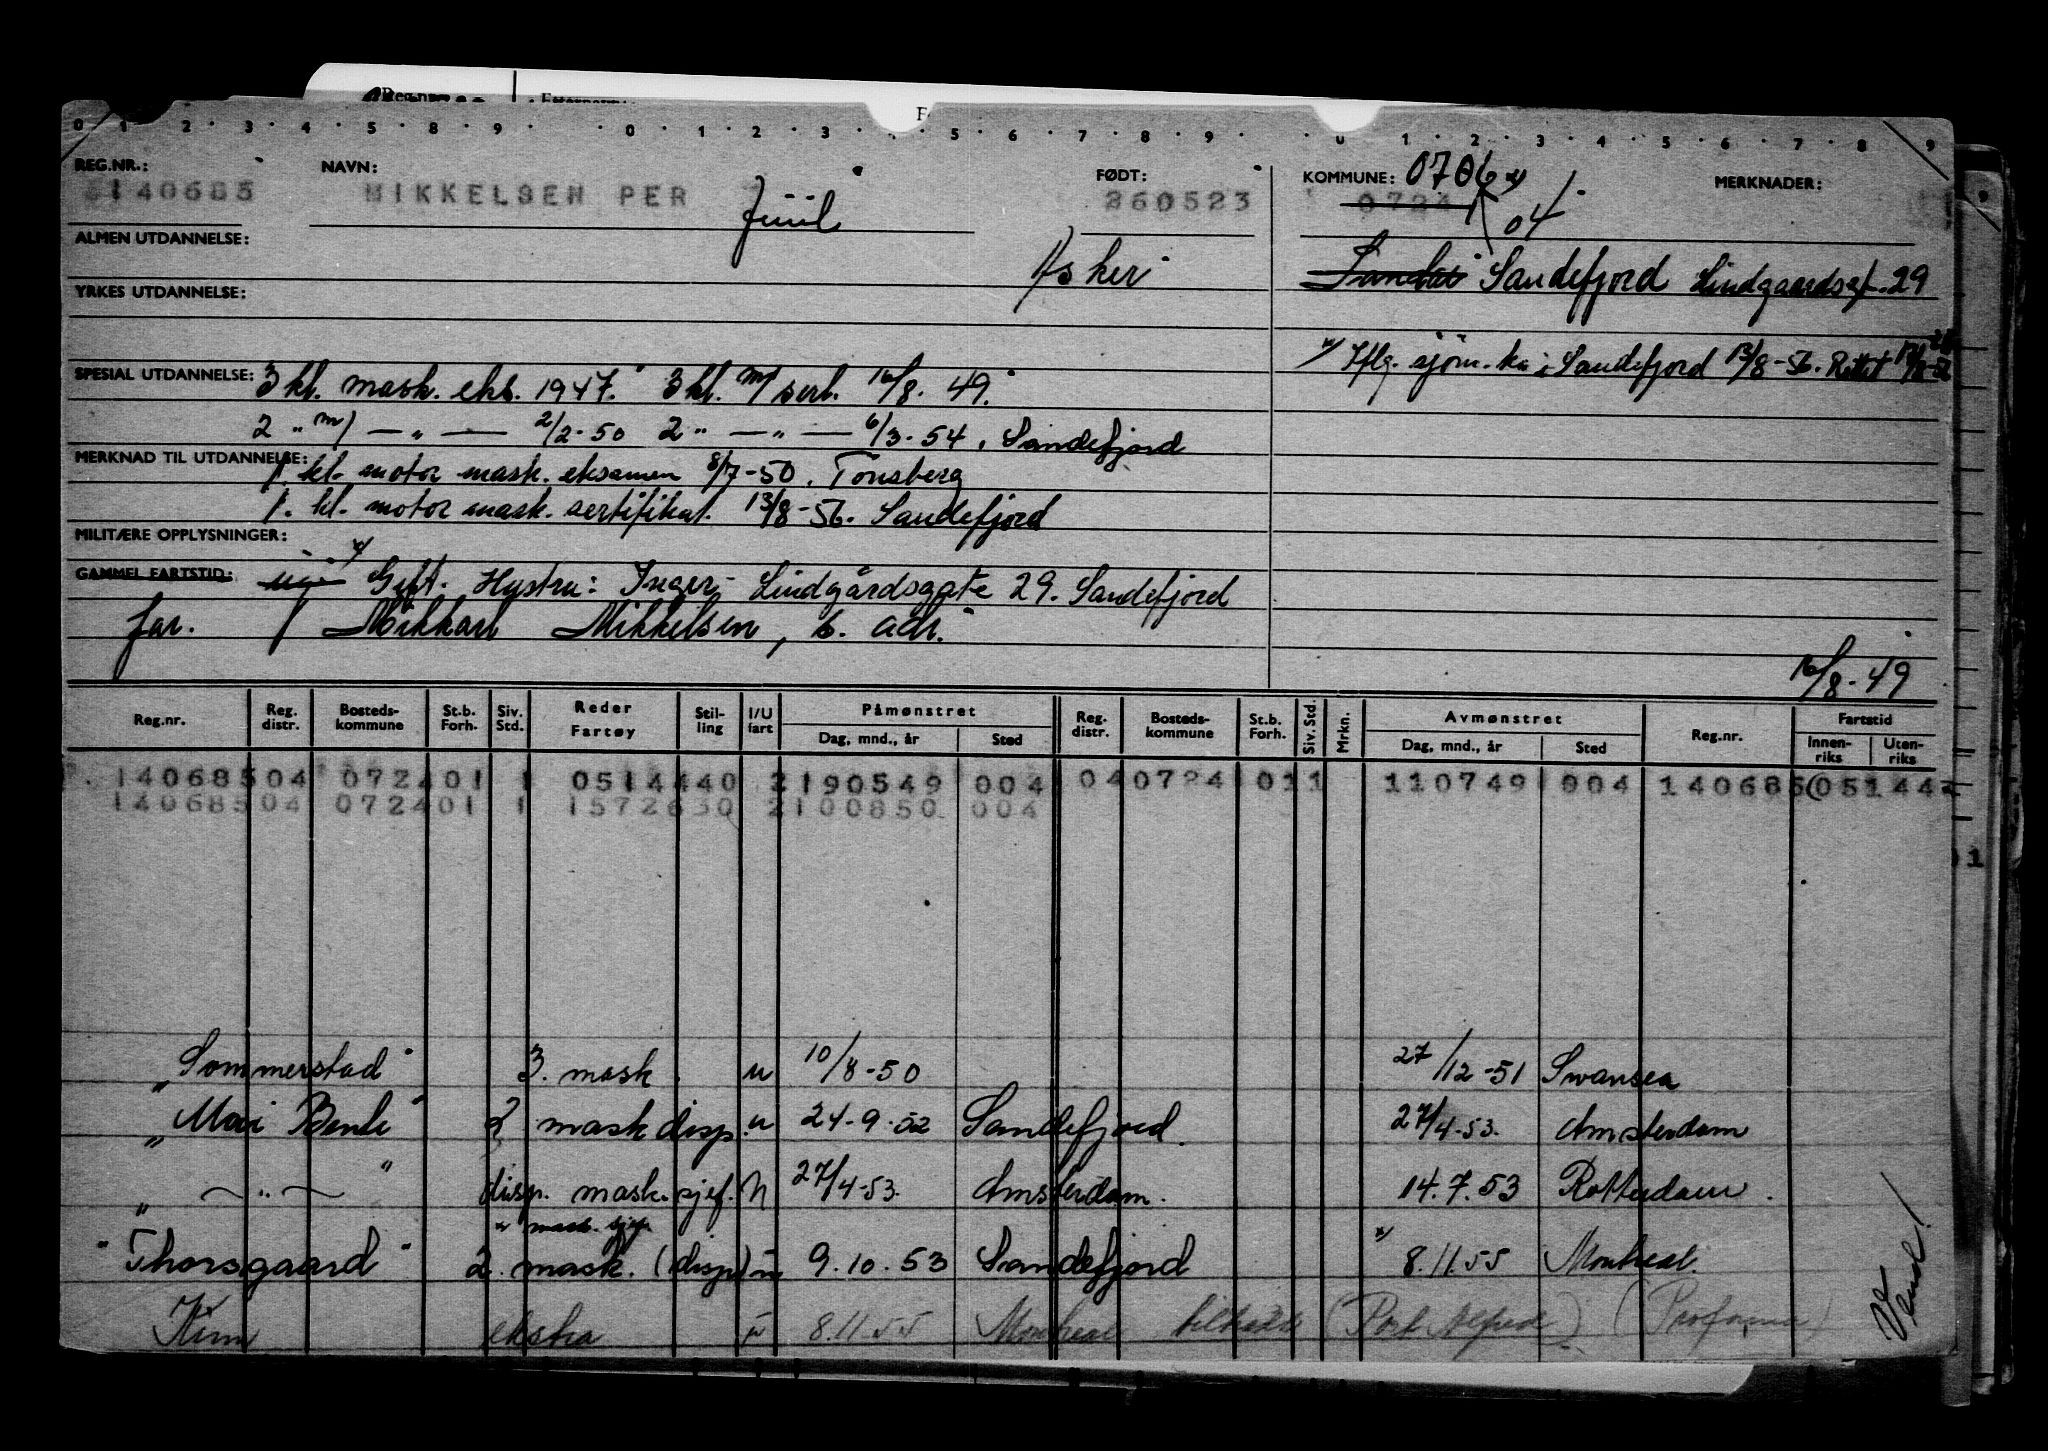 0 1 2 3 4 5 8 9 0 1 2 3 5 6 7 8 9 0 1 2 3 4 5 6 7 8 9
REG.NR.: NAVN: FØDT: KOMMUNE: 0706 x) MERKNADER:
140685 MIKKELSEN PER Juul 260523 0724 04
ALMEN UTDANNELSE: Asker Sandar Sandefjord Lindgaardsgt. 29
YRKES UTDANNELSE:
x) Iflg. sjøm.ktr. i Sandefjord 13/8-56. Rettet
SPESIAL UTDANNELSE: 3 kl. mask. eks. 1947. 3 kl. m/ sert. 16/8. 49.
2 " m/ — " — 2/2-50 2 " — " — 6/3-54, Sandefjord
MERKNAD TIL UTDANNELSE: 1. kl. motor mask. eksamen 8/7-50. Tønsberg
1. kl. motor mask. sertifikat. 13/8-56. Sandefjord
MILITÆRE OPPLYSNINGER:
GAMMEL FARTSTID: ugi x/ Gift. Hustru: Inger - Lindgårdsgate 29. Sandefjord
far. / Mikkael Mikkelsen, s. adr.
16/8-49
Reg.nr. Reg. distr. Bosteds-kommune St.b. Forh. Siv. Std. Reder Fartøy Stil-ling I/U fart Påmønstret Dag, mnd., år Sted Reg. distr. Bosteds-kommune St.b. Forh. Siv. Std. Mrkn. Avmønstret Dag, mnd., år Sted Reg.nr. Fartstid Innen-riks Uten-riks
140685 04 0724 01 1 0514440 2 190549 004 04 0724 01 1 110749 004 140685 051444
140685 04 0724 01 1 1572630 2 100850 004
"Sommerstad" 3. mask. u 10/8-50 27/12-51 Swansea
"Mari Bente" 2 mask disp. u 24-9-52 Sandefjord. 27/4-53. Amsterdam
" — " — " disp. mask.sjef. u 27/4-53. Amsterdam. 14.7.53 Rotterdam.
x mask. sjef
"Thorsgaard" 2. mask. (disp) u 9.10.53 Sandefjord x) 8.11.55 Montreal.
Kim ekstra u 8.11.55 Montreal (Port Alfred) (Proforma)
Vend!